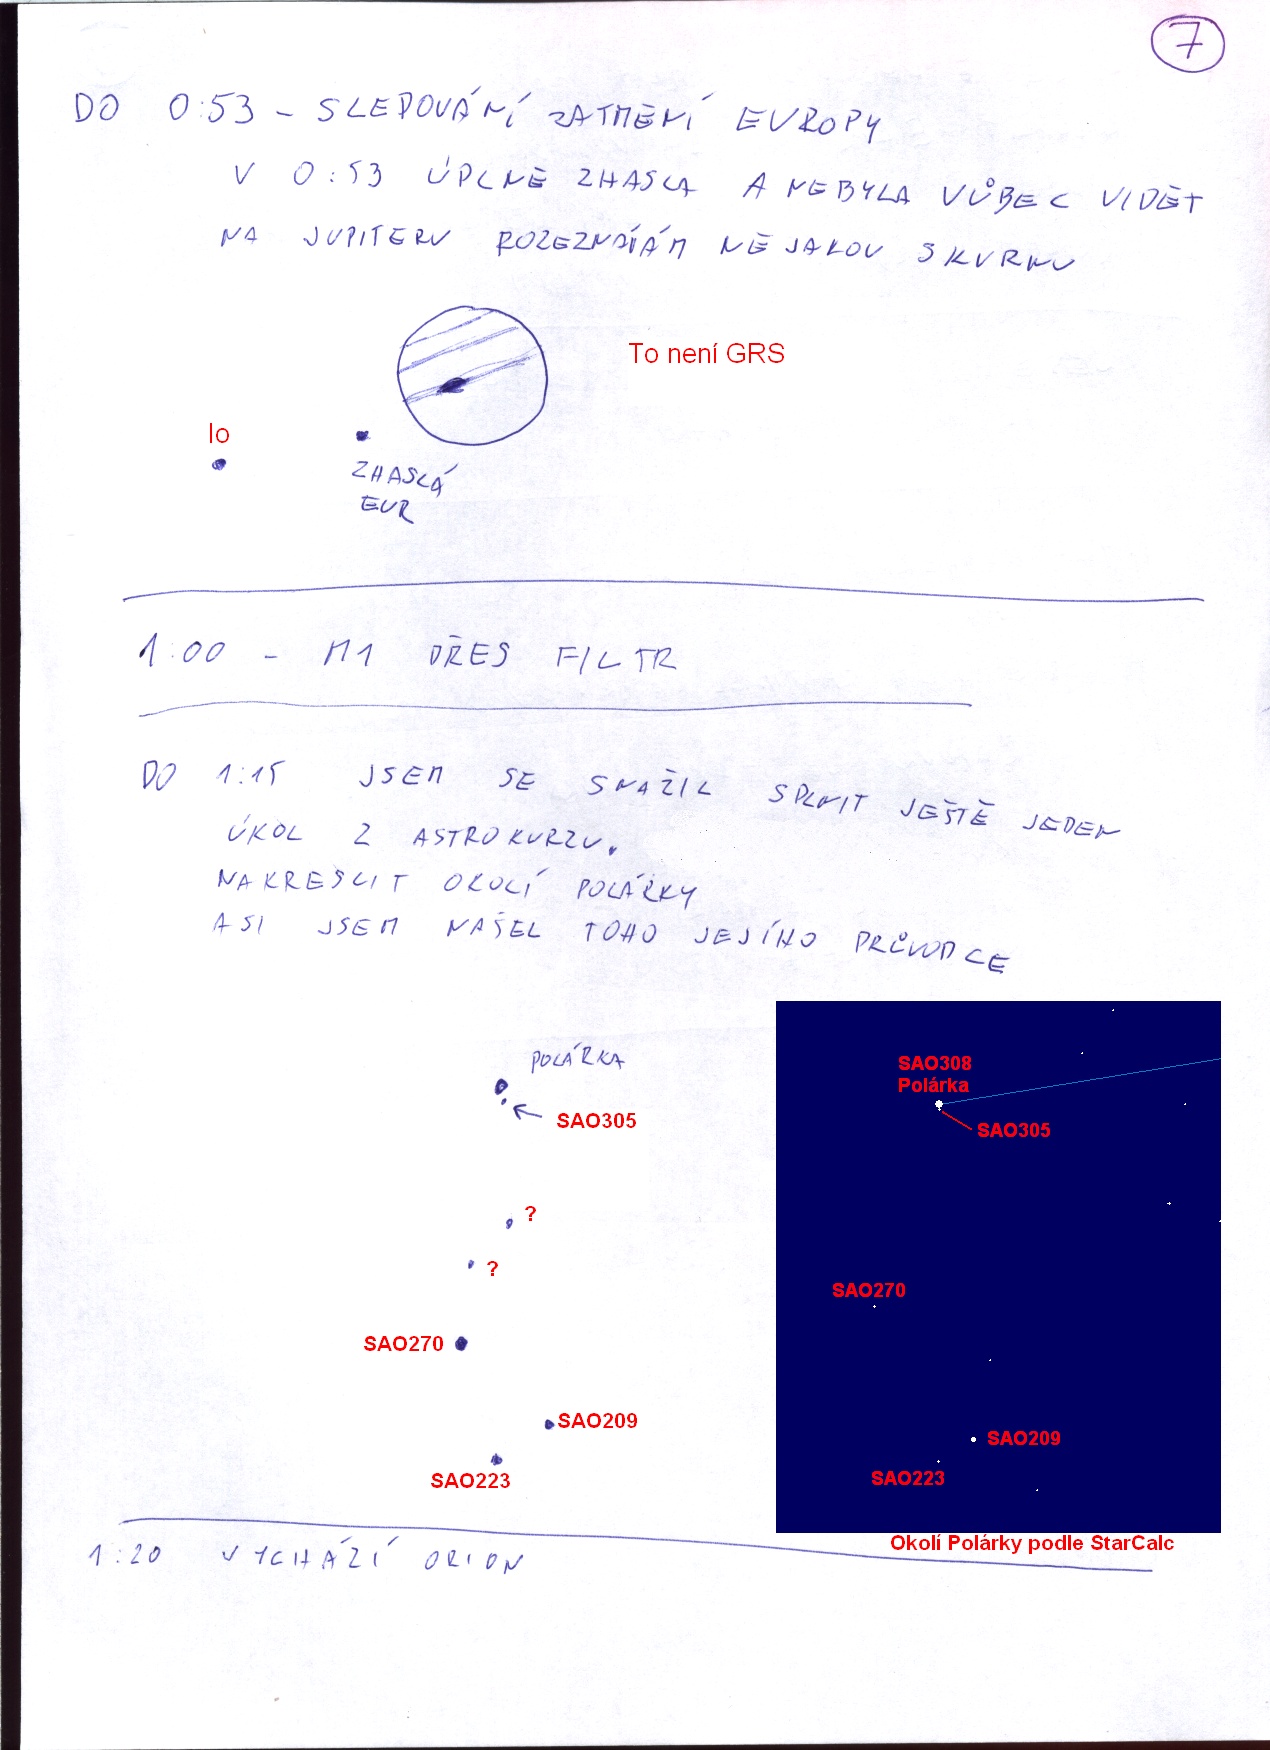 7
DO 0:53 - SLEDOVÁNÍ ZATMĚNÍ EVROPY
V 0:53 ÚPLNĚ ZHASLA A NEBYLA VŮBEC VIDĚT
NA JUPITERU ROZEZNÁVÁM NĚJAKOU SKVRNU
To není GRS
Io
ZHASLÁ
EUR
1:00 - M1 PŘES FILTR
DO 1:15 JSEM SE SNAŽIL SPLNIT JEŠTĚ JEDEN
ÚKOL Z ASTROKURZU.
NAKRESLIT OKOLÍ POLÁRKY
ASI JSEM NAŠEL TOHO JEJÍHO PRŮVODCE
POLÁRKA
SAO305
?
?
SAO270
SAO209
SAO223
SAO308
Polárka
SAO305
SAO270
SAO209
SAO223
Okolí Polárky podle StarCalc
1:20 VYCHÁZÍ ORION